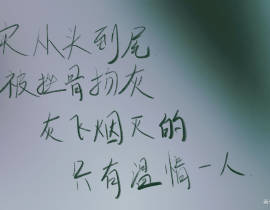 灾从头到尾
被挫骨扬灰
灰飞烟灭的
只有温情一人